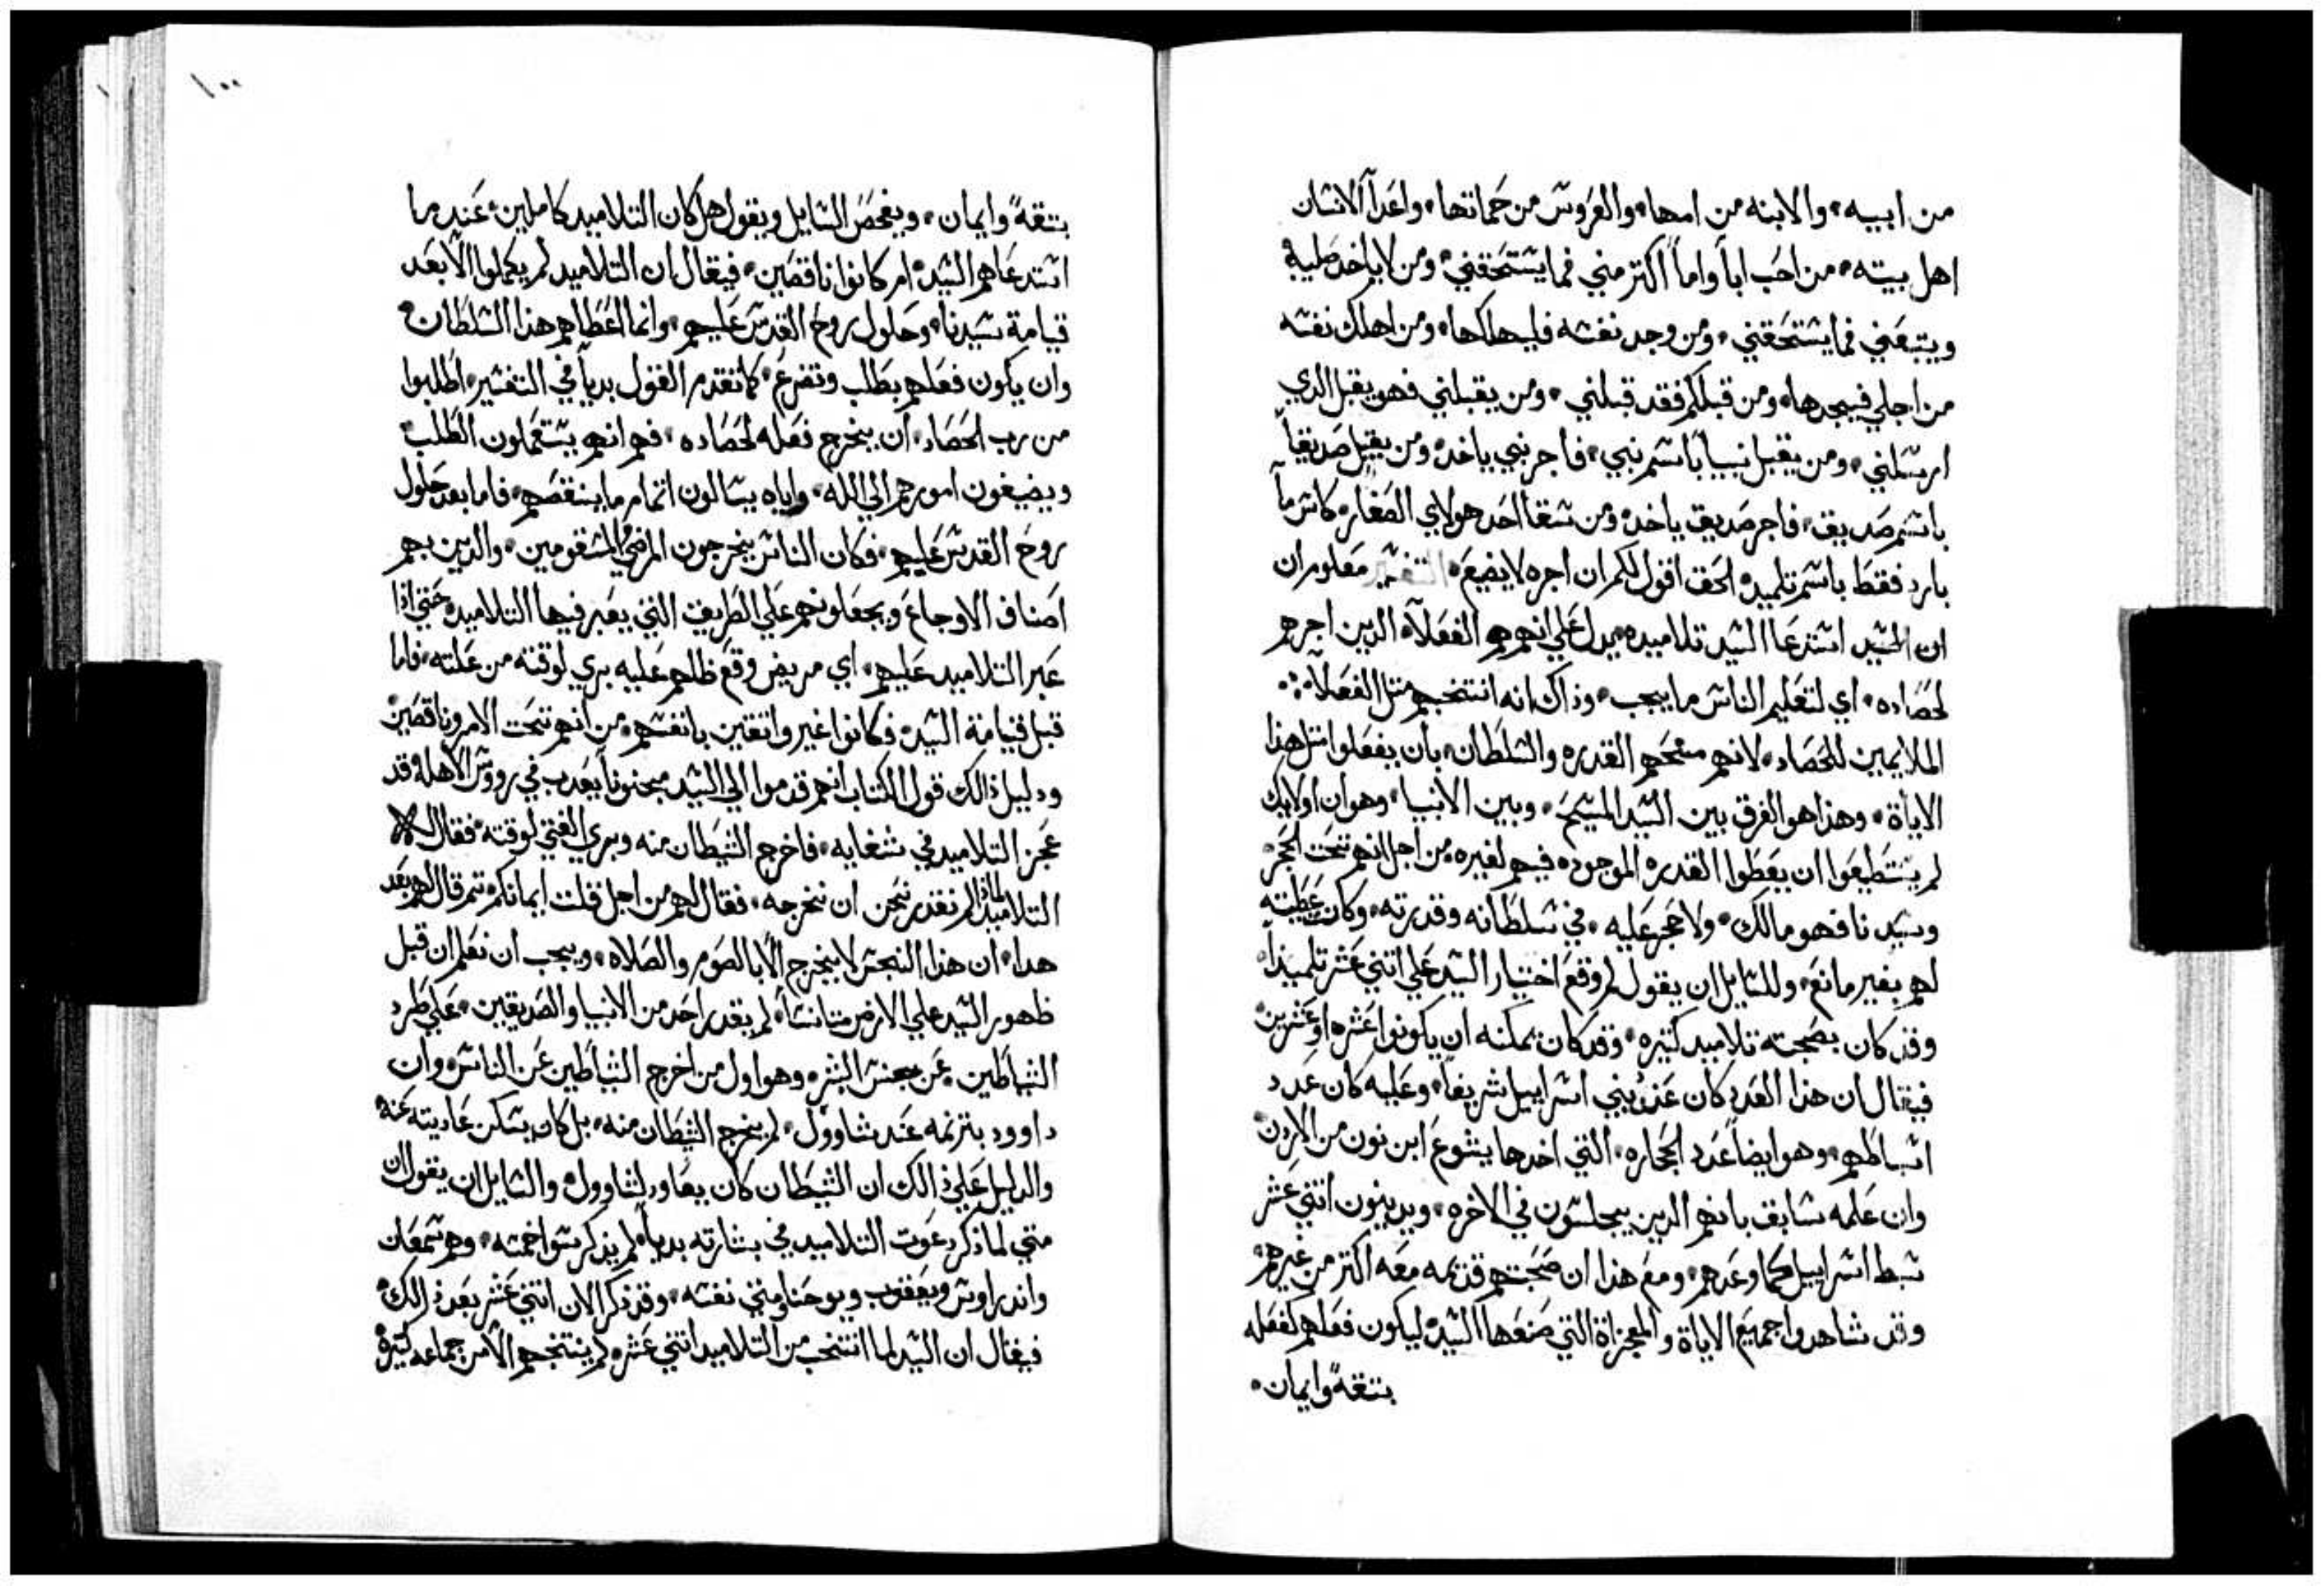 من ابيه، والابنه من امها، والعروس من حماتها، واعدآ الانسان
اهل بيته، من احب اباً واماً اكتر مني فما يستحقني، ومن لا ياخد صليبه
ويتبعني فما يستحقني، ومن وجد نفسه فليهلكها، ومن اهلك نفسه
من اجلي فيجدها، ومن قبلكم فقد قبلني، ومن يقبلني فهو يقبل الدي
ارسلني، ومن يقبل نبياً باسم نبي، فاجر نبي ياخد، ومن يقبل صديقاً
باسم صديق، فاجر صديق ياخد، ومن سقا احد هولاي الصغار، كاس مآ
بارد فقط باسم تلميد، الحق اقول لكم ان اجره لا يضيع، التفسير معلوم ان
ان السيد استدعا السيد تلاميده، يدل علي انهم هم الفعلآ، الدين اجرهم
لحصاده، اي لتعليم الناس ما يجب، وذاك انه انتخبهم متل الفعلآ
الملايمين للحصاد، لانهم منحهم القدره والسلطان، بان يفعلوا متل هذا
الاياة، وهذا هو الفرق بين السيد المسيح، وبين الانبيا، وهو ان اولايك
لم يستطيعوا ان يعطوا القدره الموجوده فيهم لغيره، من اجل انهم تحت الحجر
وسيدنا فهو مالك، ولا حجر عليه، في سلطانه وقدرته، وكانت عطيته
لهم بغير مانع، وللسايل ان يقول لم وقع اختيار السيد علي اتني عشر تلميداً
وقد كان بصحبته تلاميد كتيره، وقد كان يمكنه ان يكونوا عشره او عشرين
فيقال ان هذا العدد كان عند بني اسراييل شريفاً، وعليه كان عدد
اسباطهم، وهو ايضاً عدد الحجاره، التي اخدها يشوع ابن نون من الاردن
وان علمه سابق بانهم الدين يجلسون في الاخره، ويدينون اتني عشر
سبط اسراييل كما وعدهم، ومع هذا ان صحبتهم قديمه معه اكتر من غيرهم
وقد شاهدوا جميع الاياة والمعجزاة التي صنعها السيد، ليكون فعلهم كفعله
بتقةً وايمان،
١٠٠
بتقةً وايمان، ويفحص السايل ويقول هل كان التلاميد كاملين، عند ما
استدعاهم السيد، ام كانوا ناقصين، فيقال ان التلاميد لم يكملوا الا بعد
قيامة سيدنا، وحلول روح القدس عليهم، وانما اعطاهم هذا السلطان،
وان يكون فعلهم بطلب وتضرع، كما تقدم القول بدياً في التفسير، اطلبوا
من رب الحصاد، ان يخرج فعله لحصاده، فهم انهم يستعملون الطلب
ويضيفون امورهم الي الله، واياه يسالون اتمام ما ينقصهم، فاما بعد حلول
روح القدس عليهم، فكان الناس يخرجون المرضي المسقومين، والدين بهم
اصناف الاوجاع ويجعلونهم علي الطريق التي يعبر فيها التلاميد، حتي اذا
عبر التلاميد عليهم، اي مريض وقع ظلهم عليه بري لوقته من علته، فاما
قبل قيامة السيد، فكانوا غير واتقين بانفسهم، من انهم تحت الامر وناقصين
ودليل ذالك قول الكتاب انهم قدموا الي السيد مجنوناً يعدب في رووس الاهله، وقد
عجز التلاميد في شفايه، فاخرج الشيطان منه وبري الفتي لوقته، فقال
التلاميد لماذا لم نقدر نحن ان نخرجه، فقال لهم من اجل قلت ايمانكم، تم قال لهم بعد
هدا، ان هذا النجس لا يخرج الا بالصوم والصلاه، ويجب ان نعلم ان قبل
ظهور السيد علي الارض متانساً، لم يقدر احد من الانبيا والصديقين، علي طرد
الشياطين، عن جنس البشر، وهو اول من اخرج الشياطين عن الناس، وان
داوود بترنمه عند شاوول، لم يخرج الشيطان منه، بل كان يسكن عاديته عنه
والدليل علي ذالك ان الشيطان كان يعاود لشاوول، والسايل ان يقول ان
متي لما ذكر دعوت التلاميد في بشارته بدياً، لم يذكر سوا خمسه، وهم سمعان
واندراوس ويعقوب ويوحنا ومتي نفسه، وقد ذكر الان اتني عشر بعد ذالك،
فيقال ان السيد لما انتخب من التلاميد اتني عشره، لم ينتخبهم الا من جماعه كتيرة